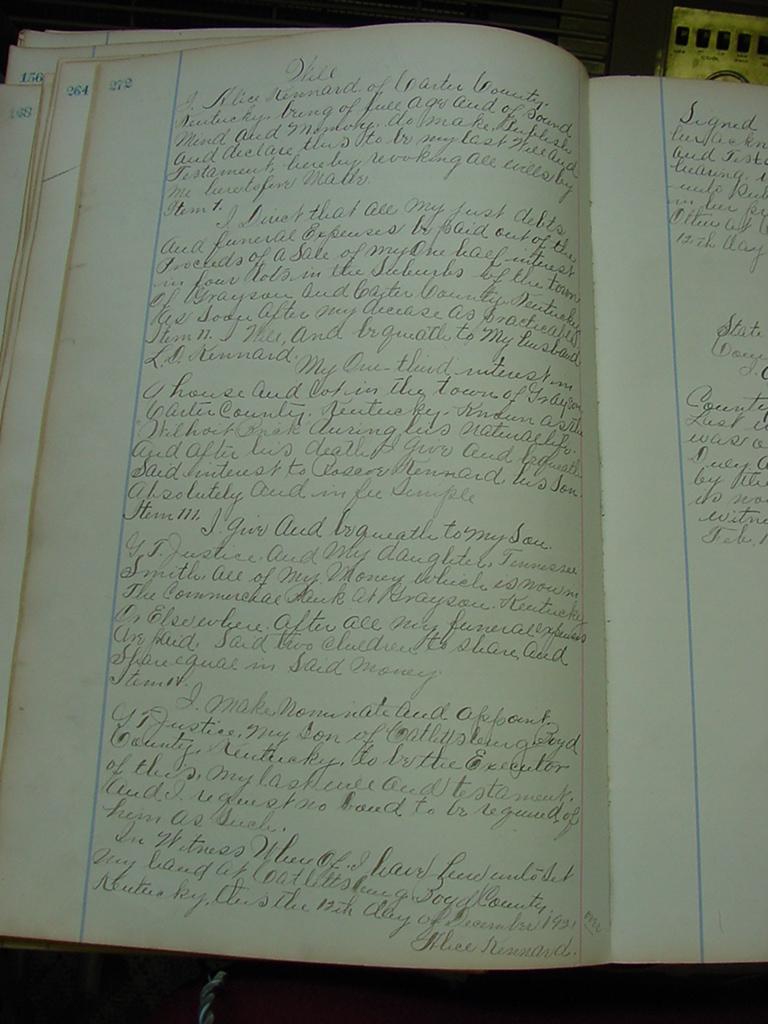 156
264
272
168
Will
I, Alice Kennard of Carter County,
Kentucky, being of full age and of Sound
Mind and Memory, do make, Publish
and declare, this to be my last Will and
Testament, hereby revoking all wills by
me heretofore Made.
Item 1.
I Direct that all My just debts
and funeral Expenses be paid out of the
Proceeds of a Sale of my One half interest
in four Lots in the Suburbs of the town
of Grayson and Carter County, Kentucky
as soon after my decease as practicable
Item 11. I Will, and bequeath to My husband
L. D. Kennard. My One-third interest in
a house and Lot in the town of Grayson
Carter County, Kentucky. Known as the
during his Natural life.
and after his death I give and bequeath
Said interest to Roscoe Kennard his Son
absolutely and in fee Simple
Item 111.
I give And bequeath to my Son.
G. T. Justice. and My daughter, Tennessee
Smith, all of My Money which is now in
The Commercial Bank at Grayson, Kentucky
Or Elsewhere. after all my funeral expenses
Are paid. Said two children to share and
Share equal in Said Money.
Item 1V.
I. Make, Nominate and appoint
G T Justice, My Son of Catlettsburg Boyd
County, Kentucky, to be the Executor
of this, my last will and testament.
And I request no bond to be required of
him as Such.
In Witness Where Of. I have here unto Set
My hand at Catlettsburg Boyd County,
Kentucky, this the 12th day of December 1921
Alice Kennard.
Signed
her
and Testa
hearing.
unto
in her
Often at
12th day
State
Coun
County
Last
was
Duly
by the
is now
witn
Feb. 1